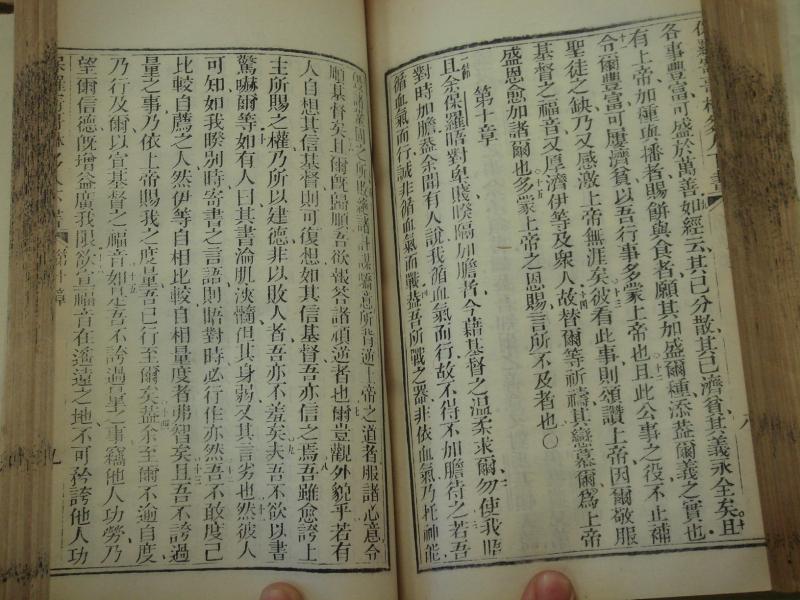 各事豐富可盛於萬善如經云其已分散其已濟貧其義永全矣且
有上帝加種與播者賜餅與食者願其加盛爾種添益爾義之實也
令爾豐富可屢濟貧以吾行事多蒙上帝也且此公事之役不止補
聖徒之缺乃又感激上帝無涯矣彼看此事則頌讚上帝因爾敬服
基督之福音又厚濟伊等及衆人故替爾等祈禱其戀慕爾爲上帝
盛恩愈加諸爾也多蒙上帝之恩賜言所不及者也
第十章
且余保羅晤對卑賤暌隔加膽者今藉基督之溫柔求爾勿使我晤
對時加膽蓋余聞有人說我循血氣而行故不得不加膽待之若吾
循血氣而行誠非循血氣而戰蓋吾所戰之器非依血氣乃托神能
上帝之道者服諸心意令
順基督矣且爾旣歸順吾欲報答諸頑逆者也爾豈觀外貌乎若有
人自想其信基督則可復想如其信基督吾亦信之焉吾雖愈誇上
主所賜之權乃所以建德非以敗人者吾亦不羞矣夫吾不欲以書
驚嚇爾等如有人曰其書淪肌浹髓但其身弱又其言劣也然彼人
可知如我暌別時寄書之言語則晤對時必行作亦然吾不敢度己
比較自薦之人然伊等自相比較自相量度者弗智矣且吾不誇過
量之事乃依上帝賜我之度量吾已行至爾矣蓋余至爾不逾自度
乃行及爾以宣基督之福音如是吾不誇過量之事竊他人功勞乃
望爾信德旣增益廣我限欲宣福音在遙遠之地不可矜誇他人功